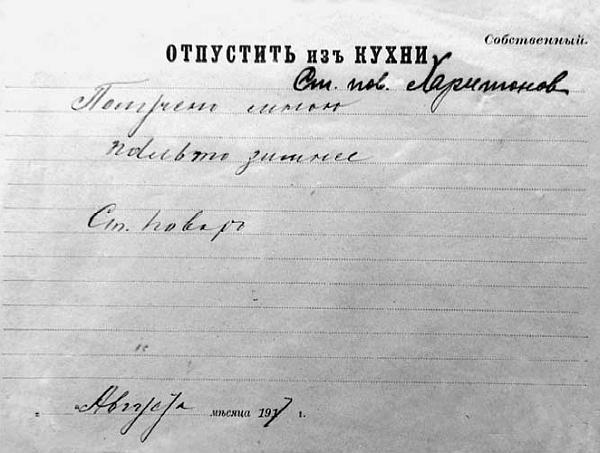 Собственный.
ОТПУСТИТЬ изъ КУХНИ
Ст. пов. Харитонов
Получено мною
пальто зимнее
Ст. поваръ
Августа мѣсяца 1917 г.